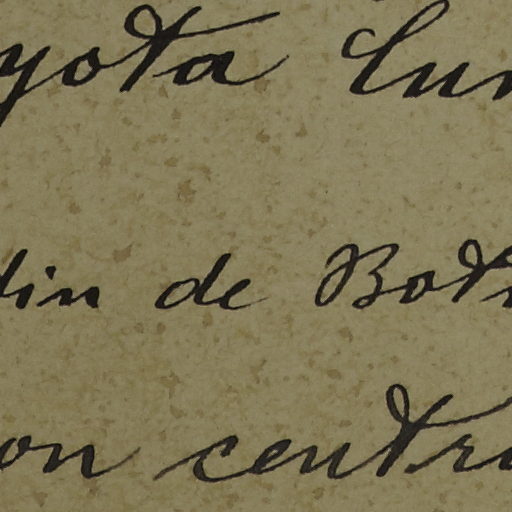 yota lun
din de Bota
on centra